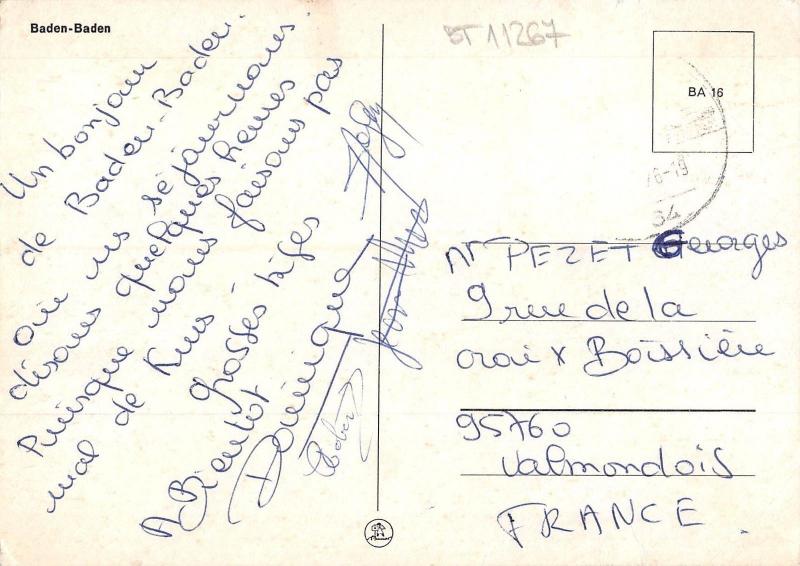 Baden-Baden
Un bonjour
de Baden-Baden.
où ns séjournons
disons quelques heures
Puisque nous faisons pas
mal de Kms.
grosses bises
A Bientôt
Dominique
Robert
BT 11267
BA 16
Mr PEZET Georges
9 rue de la
croix Boissière
95760
Valmondois
FRANCE.